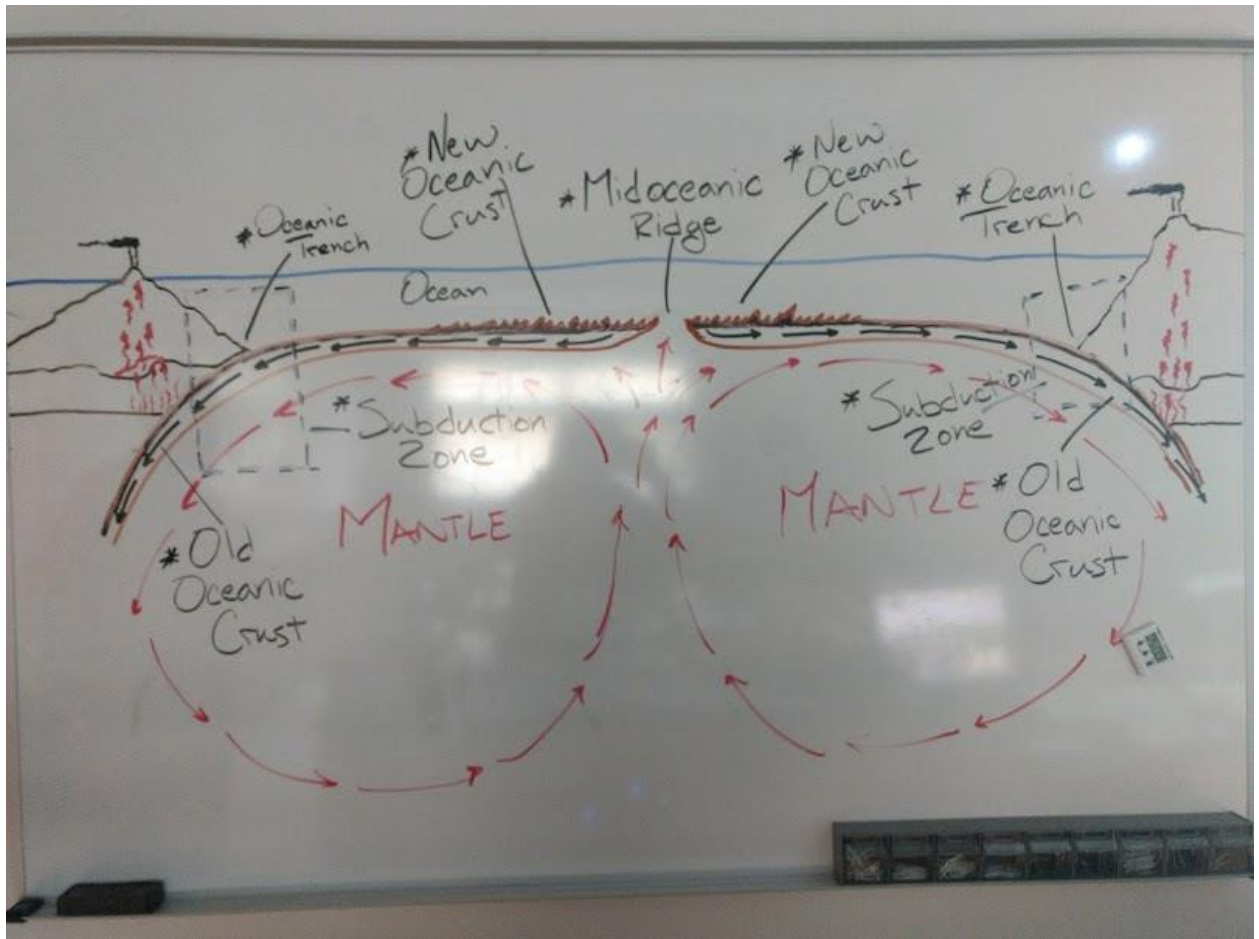 *New
Oceanic
Crust
*Midoceanic
Ridge
*New
Oceanic
Crust
*Oceanic
Trench
*Oceanic
Trench
Ocean
*Subduction
Zone
*Subduction
Zone
MANTLE
MANTLE
*Old
Oceanic
Crust
*Old
Oceanic
Crust